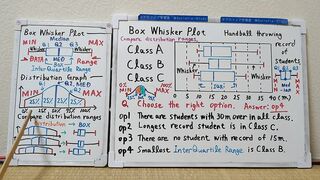 Box Whisker Plot
Median
MIN Q1 Q2 Q3 MAX
Whisker Whisker
DATA MED
BOX
InterQuartile Range
Distribution Graph
MIN MED MAX
25% 25% 25% 25%
Compare distribution ranges
Distribution → BOX
Box Whisker Plot
Handball throwing
Compare distribution ranges
record of students
Class A
Class B
Class C
Whisker Whisker
5 10 15 20 25 30 35 40 (m)
MIN MAX
Q1 Q3
MED
Q Choose the right option. Answer: op4
op1 There are students with 30m over in all class.
op2 Longest record student is in Class C.
op3 There are no students with record of 15m.
op4 Smallest InterQuartile Range is Class B.